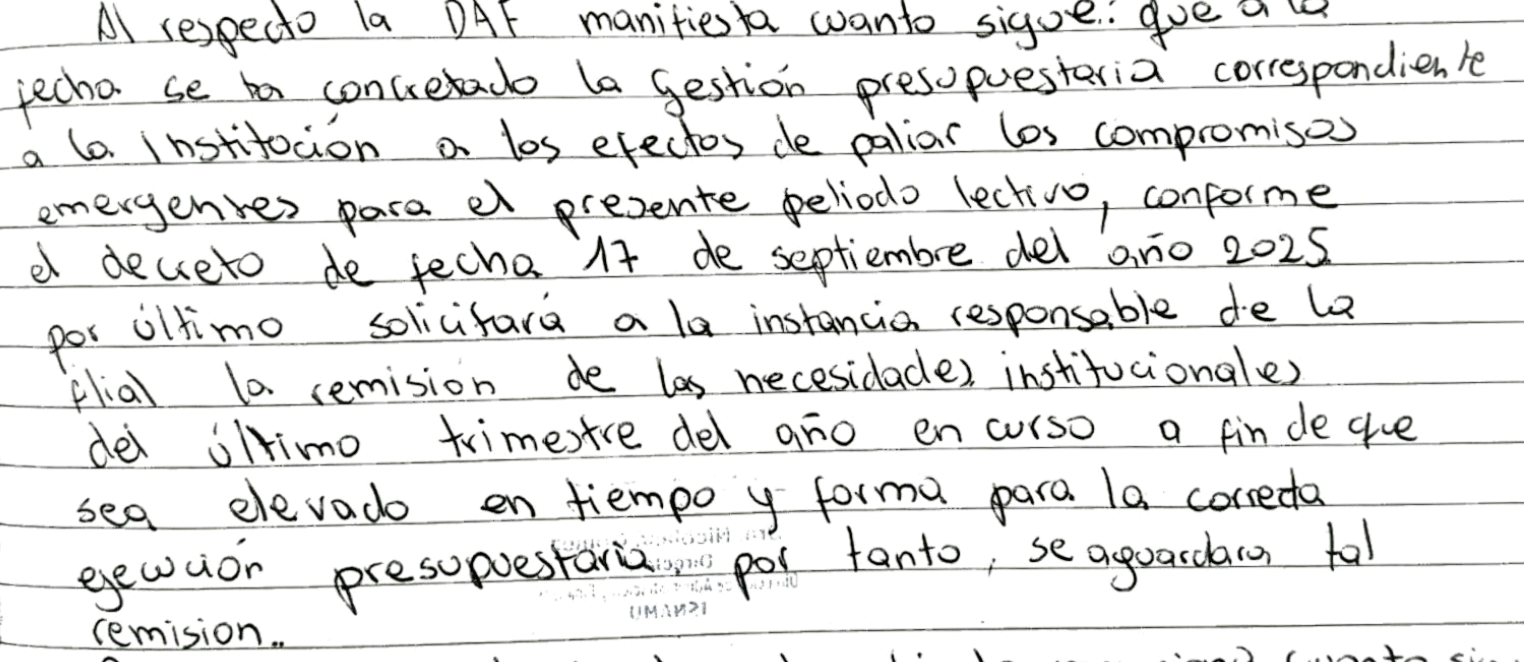 Al respecto la DAF manifiesta cuanto sigue: que a la
fecha se ha concretado la Gestión presupuestaria correspondiente
a la Institución a los efectos de paliar los compromisos
emergentes para el presente peliodo lectivo, conforme
el decreto de fecha 17 de septiembre del año 2025.
por último solicitará a la instancia responsable de la
filial la remision de las necesidades institucionales
del último trimestre del año en curso a fin de que
sea elevado en tiempo y forma para la correcta
ejecución presupuestaria, por tanto, se aguardara tal
remision..
ISNAMU